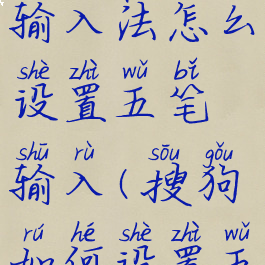 输入法怎么
shè zhì wǔ bǐ
设置五笔
shū rù sōu gǒu
输入(搜狗
rú hé shè zhì wǔ
如何设置五